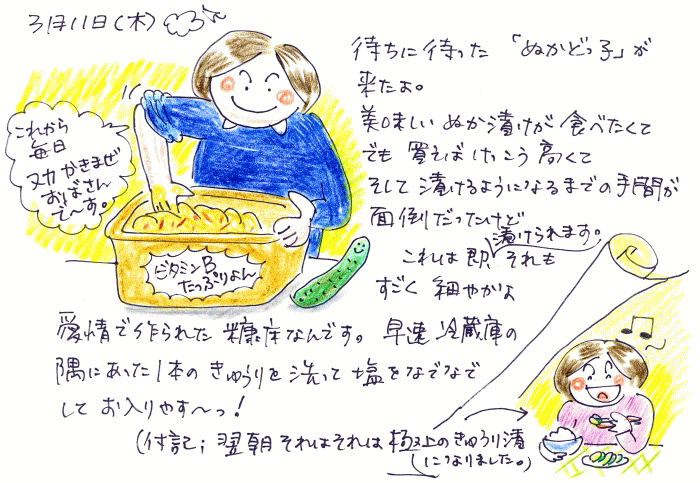 3月11日(木)
待ちに待った 「ぬかどっ子」が
来たよ。
美味しい ぬか漬けが 食べたくて
でも 買えば けっこう 高くて
そして 漬けるようになるまでの 手間が
面倒だったけど
漬けられます。
これは 即、それも
すごく 細やかな
愛情で作られた 糠床なんです。 早速 冷蔵庫の
隅にあった1本の きゅうりを 洗って 塩をなでなで
して お入りやす〜っ!
(付記; 翌朝 それはそれは 極上のきゅうり漬
になりました。)
これから
毎日
ヌカ かきまぜ
おばさん
で〜す。
ビタミンB
たっぷりよん